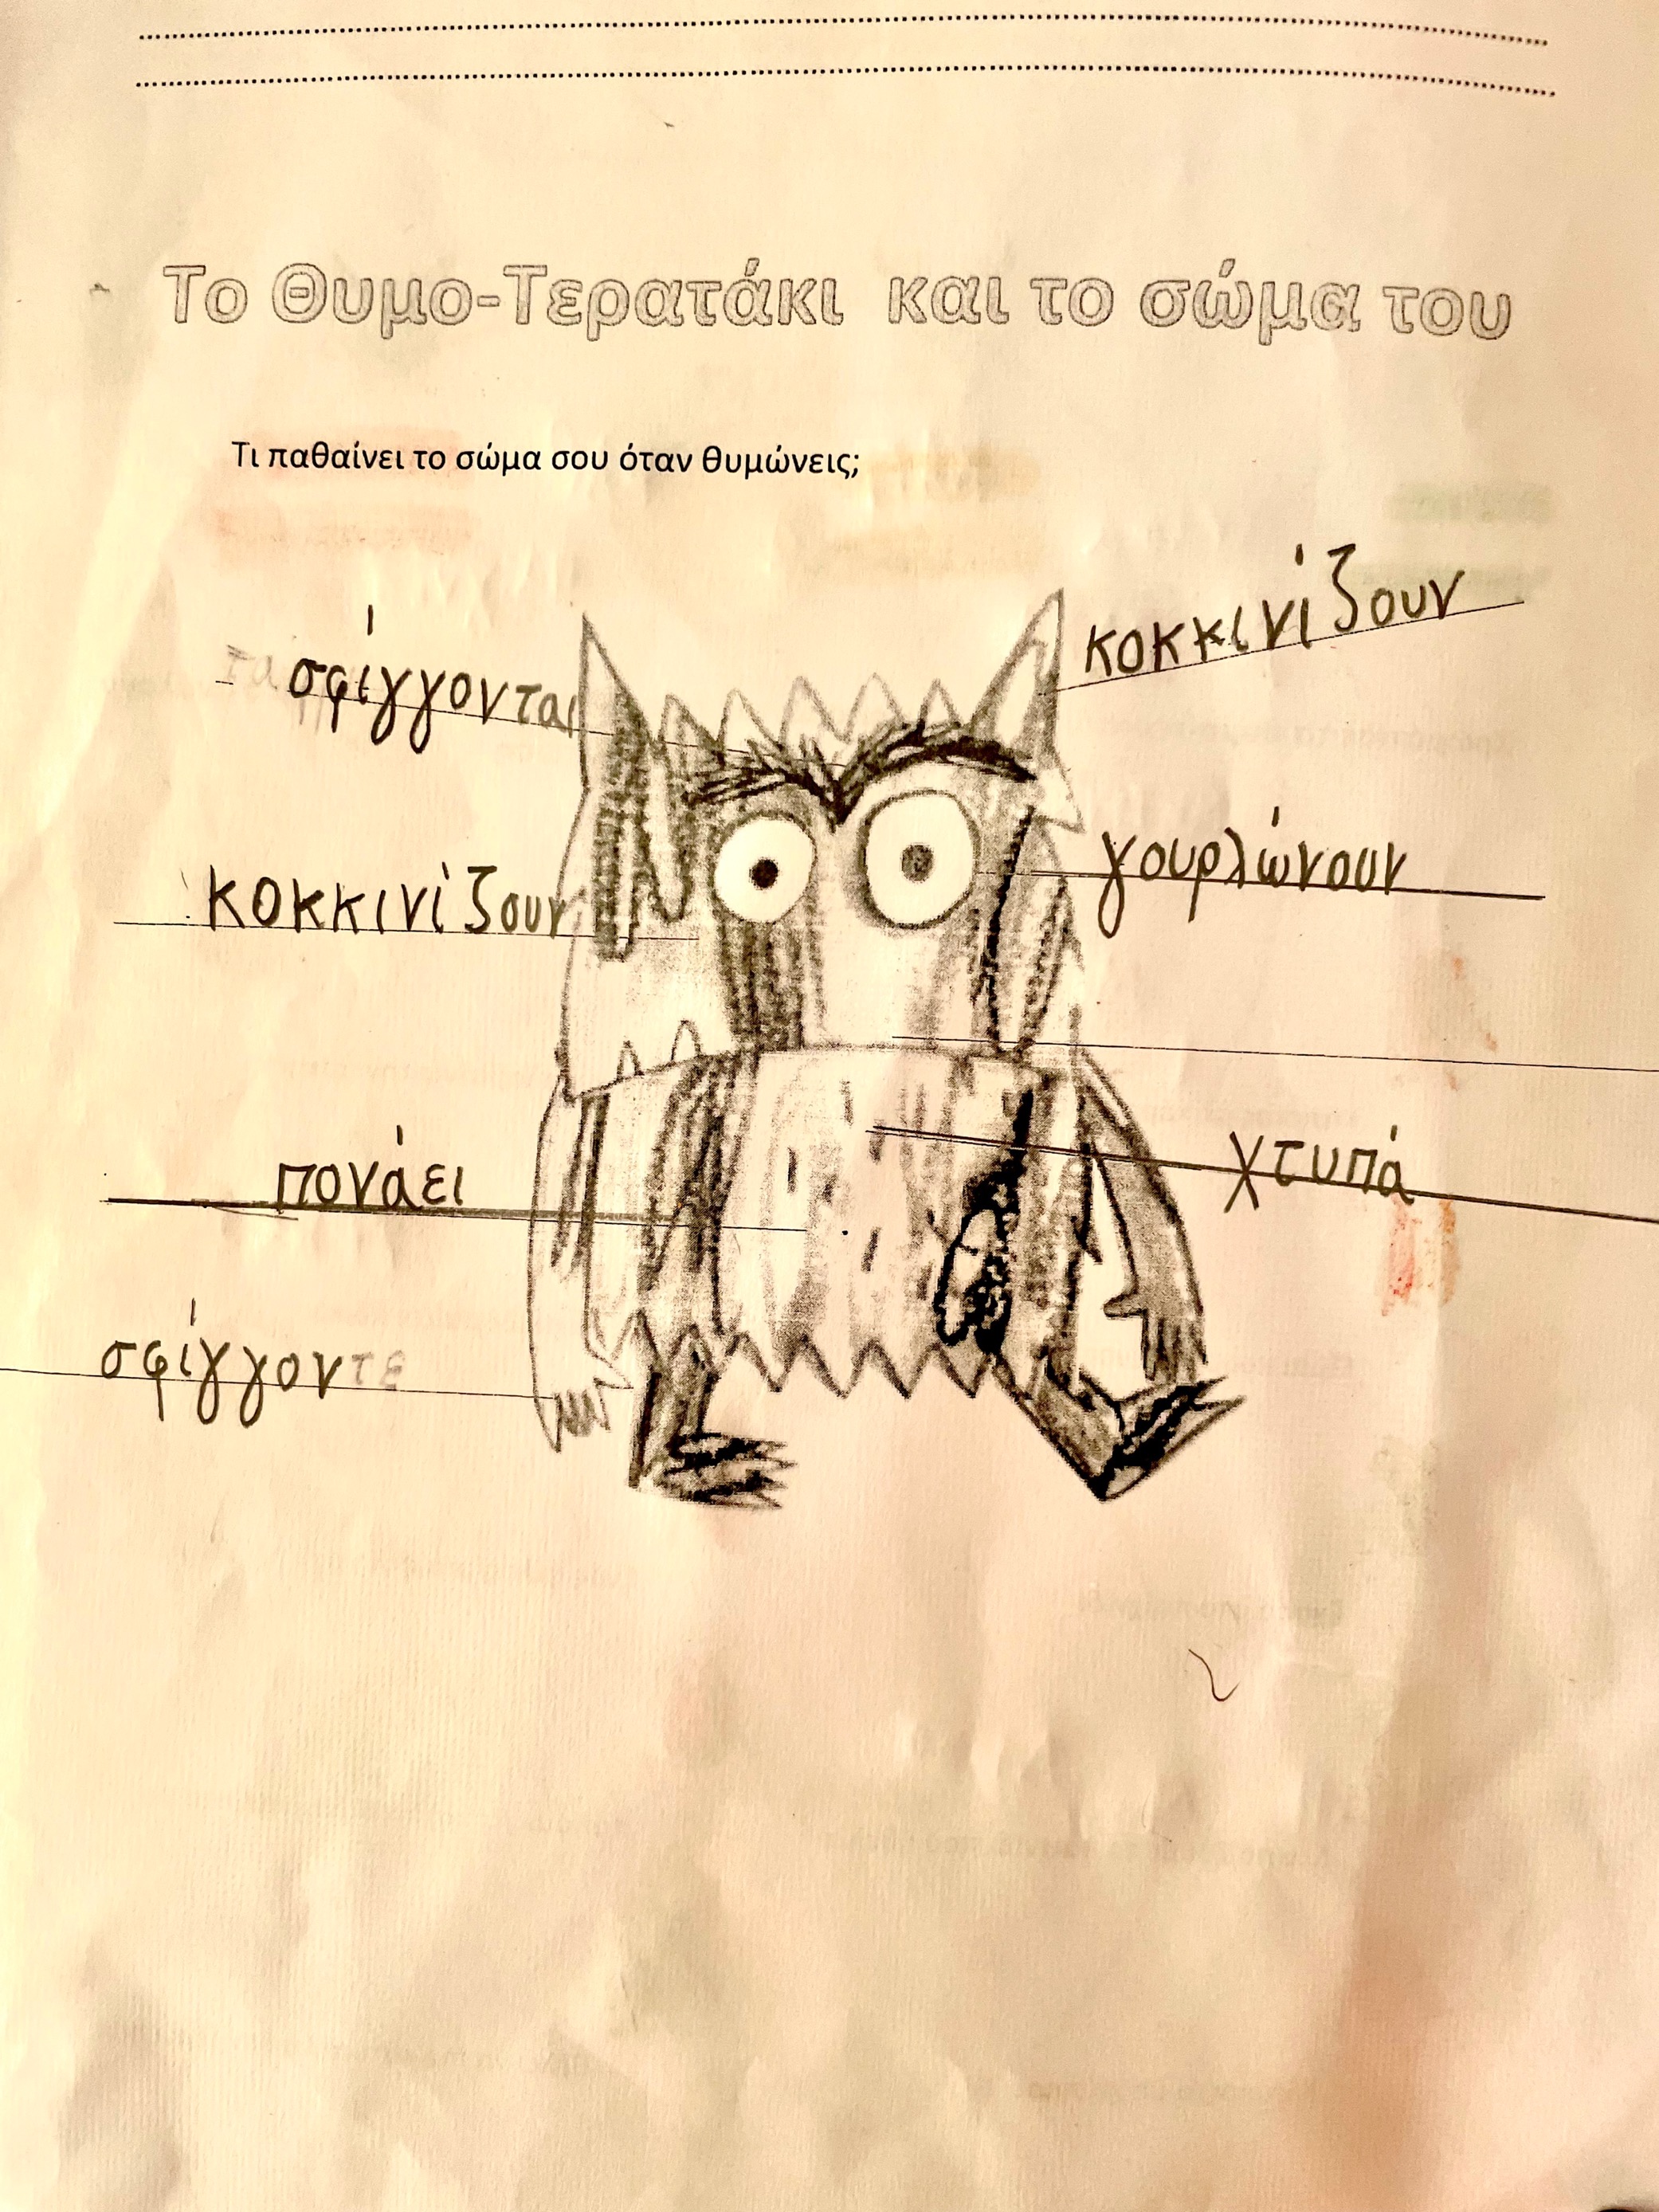 Το Θυμο-Τερατάκι και το σώμα του
Τι παθαίνει το σώμα σου όταν θυμώνεις;
κοκκινίζουν
σφίγγονται
γουρλώνουν
κοκκινίζουν
χτυπά
πονάει
σφίγγοντε